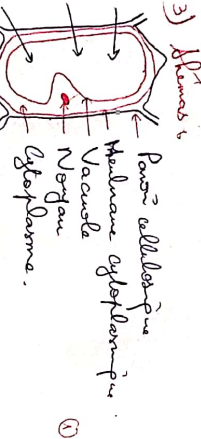 3) Shémas :
Paroi cellulosique
Membrane cytoplasmique.
Vacuole
Noyau
Cytoplasme.
1